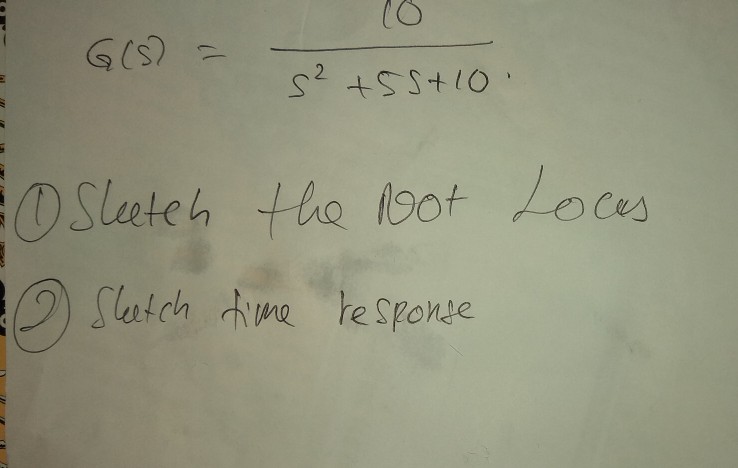 10
G(S) =
S² + 5S + 10.
① Sketch the root Locus
② Sketch time response